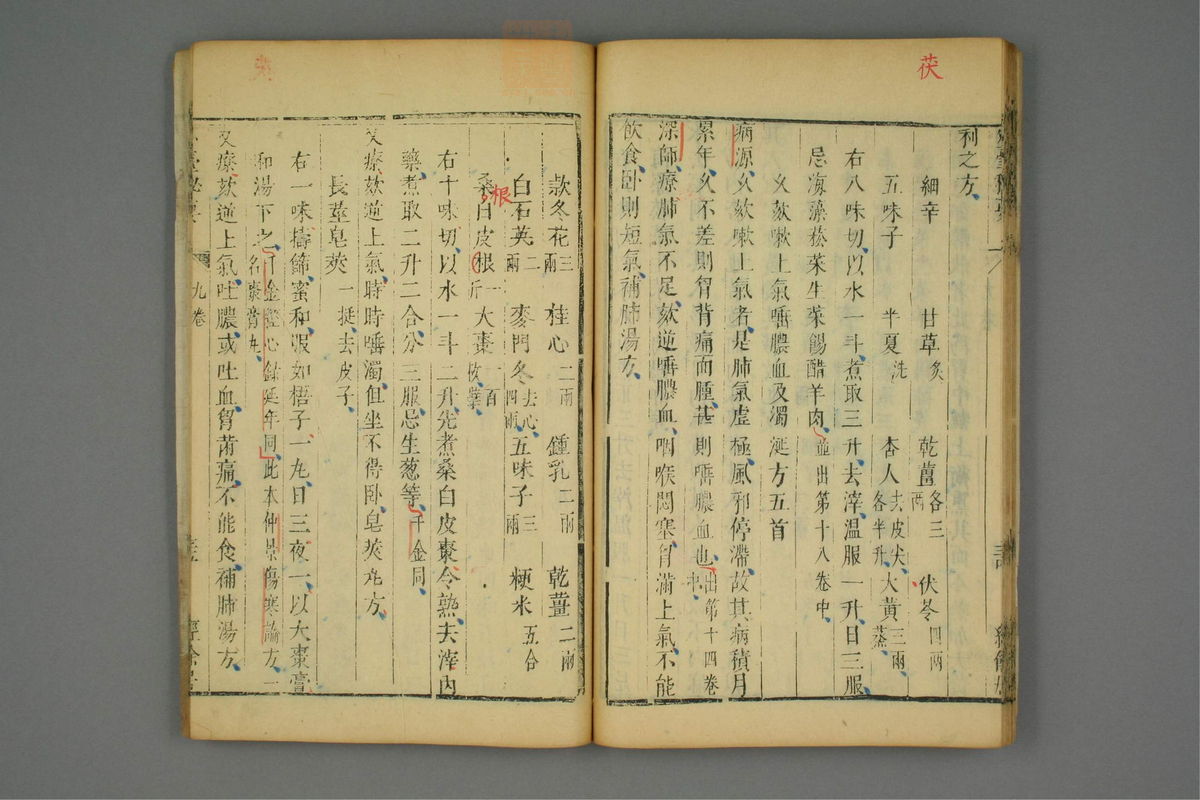 茯
利之方
細辛 甘草炙 乾薑各三兩 伏苓四兩
五味子 半夏洗 杏人去皮尖各半升 大黄三兩蒸
右八味切以水一斗煮取三升去滓温服一升日三服
忌海藻菘菜生菜餳醋羊肉並出第十八卷中
久欬嗽上氣唾膿血及濁涎方五首
病源久欬嗽上氣者是肺氣虚極風邪停滯故其病積月
累年久不差則胷背痛面腫甚則唾膿血也出第十四卷中
深師療肺氣不足欬逆唾膿血咽喉悶塞胷滿上氣不能
飲食卧則短氣補肺湯方
款冬花三兩 桂心二兩 鍾乳二兩 乾薑二兩
白石英二兩 麥門冬去心四兩 五味子三兩 粳米五合
根
桑白皮根一斤 大棗一百枚擘
右十味切以水一斗二升先煮桑白皮棗令熟去滓内
藥煮取二升二合分三服忌生葱等千金同
又療欬逆上氣時時唾濁但坐不得卧皂莢丸方
長大皂莢一挺去皮子
右一味擣篩蜜和服如梧子一丸日三夜一以大棗膏
和湯下之千金經心録延年同此本仲景傷寒論方一名棗膏丸
又療欬逆上氣吐膿或吐血胷痛不能食補肺湯方
九卷